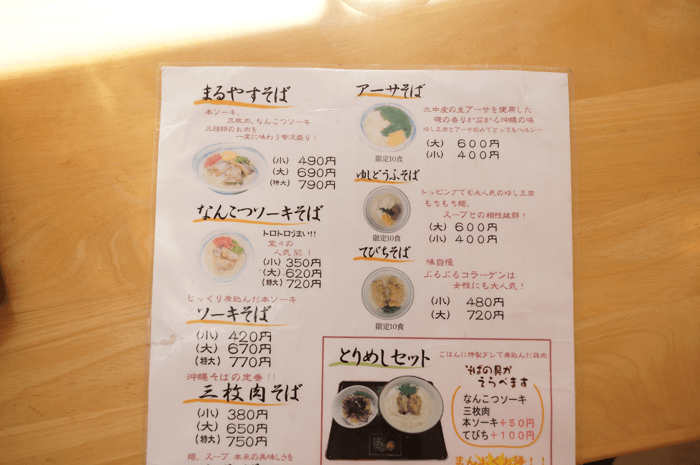 まるやすそば
本ソーキ、
三枚肉、なんこつソーキ
三種類のお肉を
一度に味わう贅沢盛り!
(小) 490円
(大) 690円
(特大) 790円
なんこつソーキそば
トロトロうまい!!
堂々の
人気NO!
(小) 350円
(大) 620円
(特大) 720円
じっくり煮込んだ本ソーキ
ソーキそば
(小) 420円
(大) 670円
(特大) 770円
沖縄そばの定番!!
三枚肉そば
(小) 380円
(大) 650円
(特大) 750円
麺、スープ 本来の美味しさを
アーサそば
北中産の生アーサを使用した
磯の香りが広がる沖縄の味
ゆし豆腐とアーサのみでとってもヘルシー
限定10食
(大) 600円
(小) 400円
ゆしどうふそば
トッピングでも大人気のゆし豆腐
もちもち麺、
スープとの相性抜群!
限定10食
(大) 600円
(小) 400円
てびちそば
味自慢
ぷるぷるコラーゲンは
女性にも大人気!
限定10食
(小) 480円
(大) 720円
とりめしセット
ごはんに特製ダレで煮込んだ鶏肉
そばの具が
えらべます
なんこつソーキ
三枚肉
本ソーキ+50円
てびち+100円
まんぷくお得!!